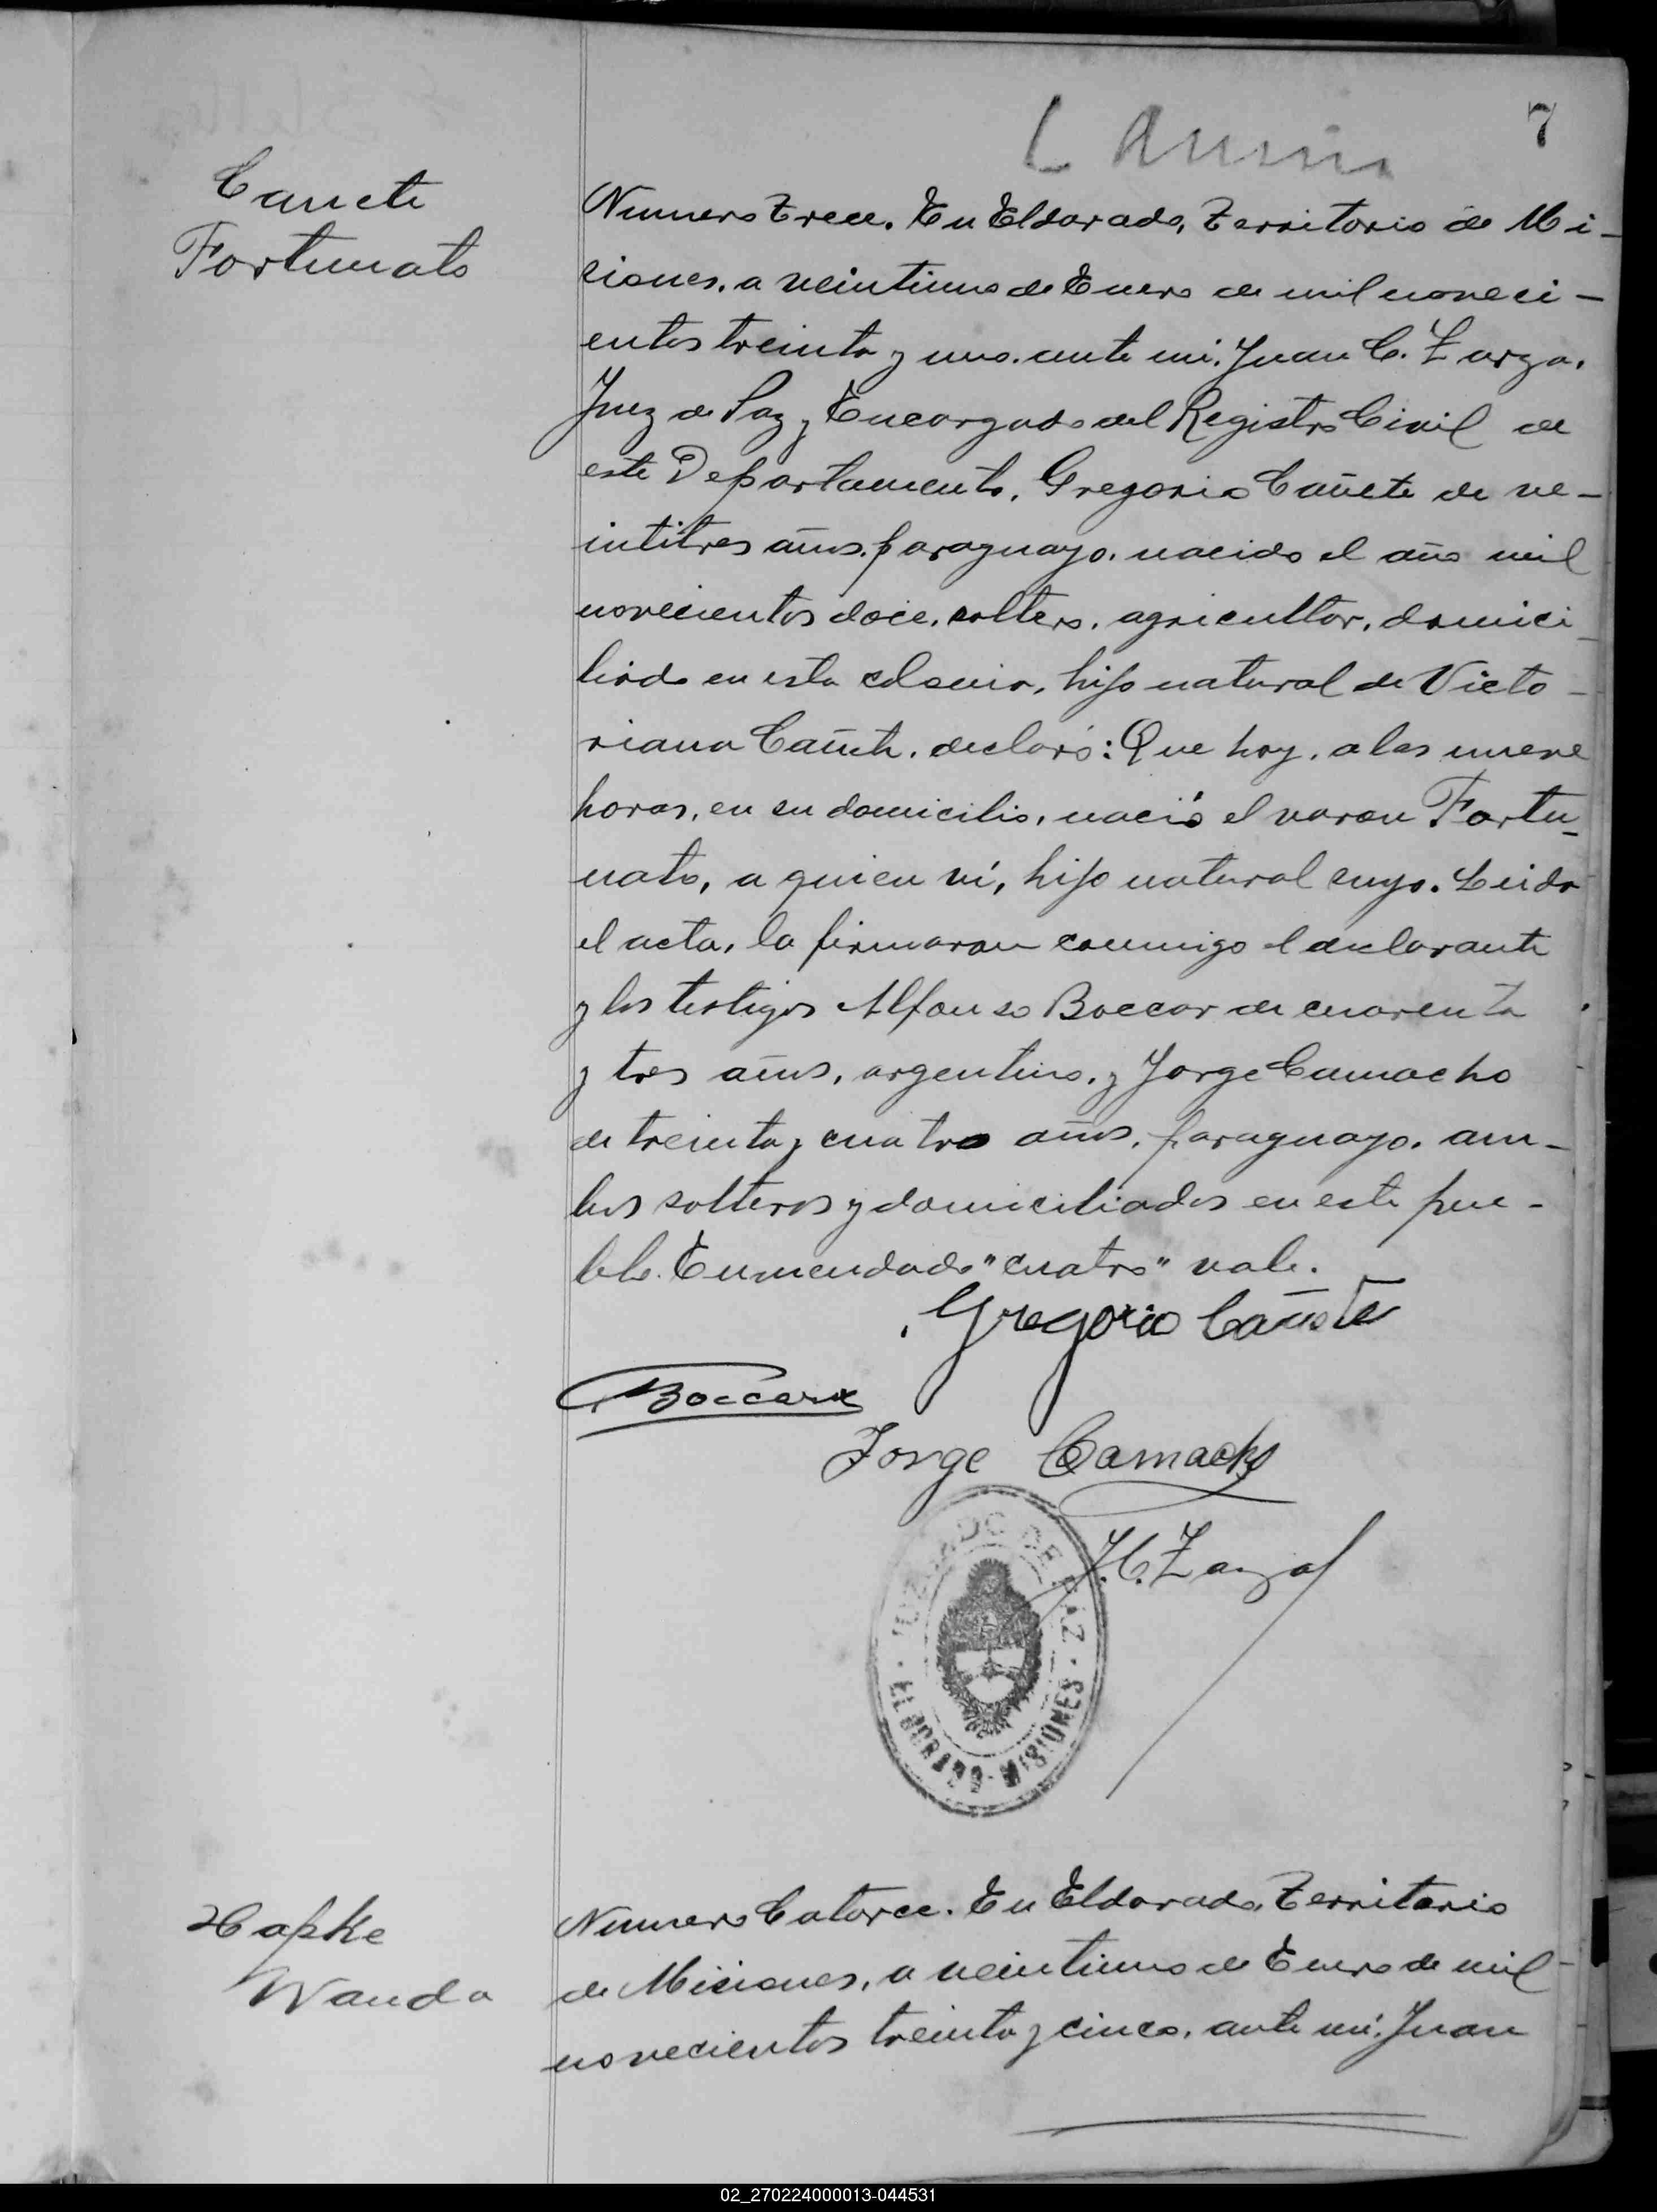 7
Cañete
Fortunato
Numero Trece. En Eldorado, Territorio de Mi-
siones, a veintiuno de Enero de mil noveci-
entos treinta y uno. ante mi. Juan C. Zarza.
Juez de Paz y Encargado del Registro Civil de
este Departamento, Gregorio Cañete de ve-
intitres años, paraguayo, nacido el año mil
novecientos doce, soltero, agricultor, domici-
liado en esta colonia, hijo natural de Victo-
riana Cañete. declaró: Que hoy, a las nueve
horas, en su domicilio, nació el varon Fortu-
nato, a quien ví, hijo natural suyo. Leida
el acta, la firmaron conmigo el declarante
y los testigos Alfonso Boccar de cuarenta
y tres años, argentino, y Jorge Camacho
de treinta y cuatro años, paraguayo, am-
bos solteros y domiciliados en este pue-
blo. Enmendado "cuatro" vale.
Gregorio Cañete
Boccar
Jorge Camacho
J.C. Zarza
JUZGADO DE PAZ
ELDORADO - MISIONES
Hapke
Wanda
Numero Catorce. En Eldorado, Territorio
de Misiones, a veintiuno de Enero de mil
novecientos treinta y cinco, ante mi, Juan
02_270224000013-044531